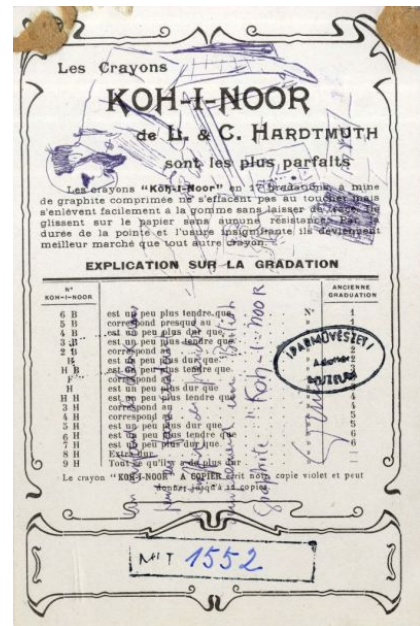 Les Crayons
KOH-I-NOOR
de L. & C. HARDTMUTH
sont les plus parfaits
Les crayons "Koh-I-Noor" en 17 gradations, à mine
de graphite comprimée ne s'effacent pas au toucher mais
s'enlèvent facilement à la gomme sans laisser de trace. Ils
glissent sur le papier sans aucune résistance. Par la
durée de la pointe et l'usure insignifiante ils deviennent
meilleur marché que tout autre crayon.
EXPLICATION SUR LA GRADATION
N°
KOH-I-NOOR
ANCIENNE
GRADUATION
6 B est un peu plus tendre que N° 1
5 B correspond presque au 1
4 B est un peu plus dur que
3 B est un peu plus tendre que
2 B correspond au 2
B est un peu plus dur que
H B est un peu plus tendre que
F correspond au
H est un peu plus dur que
H H est un peu plus tendre que 4
3 H correspond au 4
4 H correspond au 5
5 H est un peu plus dur que 5
6 H est un peu plus tendre que 6
7 H est un peu plus dur que 6
8 H Extra dur
9 H Tout ce qu'il y a de plus dur
Le crayon "KOH-I-NOOR" A COPIER écrit noir, copie violet et peut
donner jusqu'à 12 copies.
Graphite "Koh-I-NOOR
IPARMŰVÉSZETI
MÚZEUM
MLT 1552